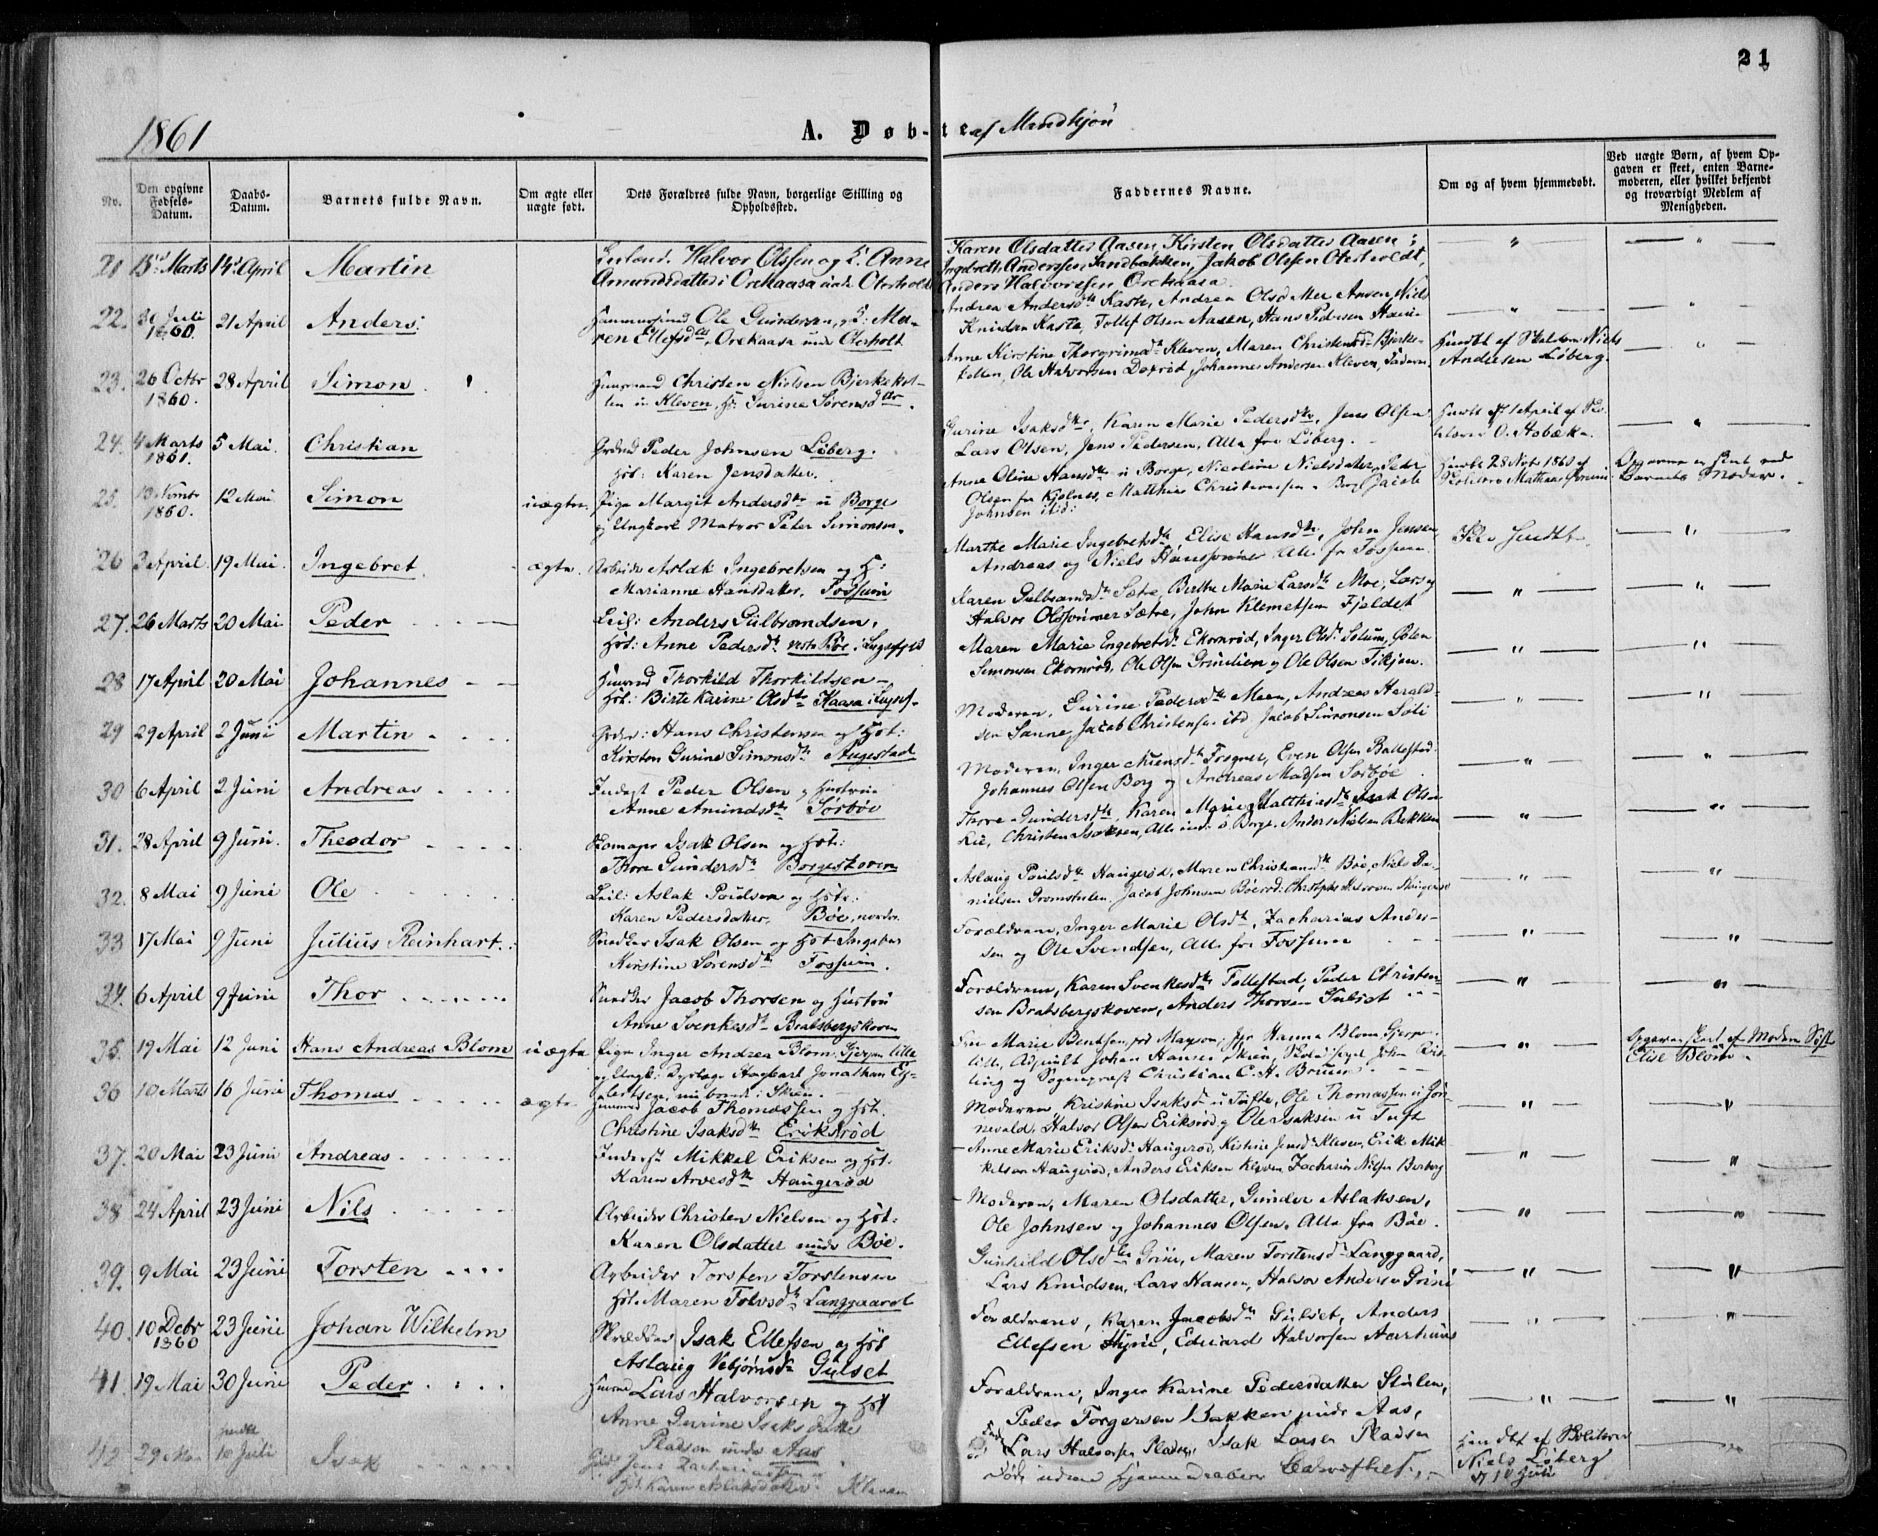 21
1861
A. Døbte af Mandkjøn
No.
Den opgivne Fødsels-Datum.
Daabs-Datum.
Barnets fulde Navn.
Om ægte eller uægte født.
Dets Forældres fulde Navn, borgerlige Stilling og Opholdssted.
Faddernes Navne.
Om og af hvem hjemmedøbt.
Ved uægte Børn, af hvem Opgaven er skeet, enten Barnemoderen, eller hvilket bekjendt og troværdigt Medlem af Menigheden.
21 13 Marts 14 April Martin Halvor Olssen og H. Anne
Amundsdatter Orekaasa under Oterholt
Karen Olsdatter Aasen, Kirsten Olsdatter Aasen
Ingebreth Anderssen Sandbakken, Jakob Olssen Oterholdt,
Anders Halvorssen Orekaasa
22. 30 Juli 1860. 21 April Anders Ole Gundersen, H: Ma-
ren Ellefsdtr, Orekaasa under Oterholt
Andrea Andersdtr Kaste, Andrea Olsdatter Aasen, Niels
Knudsen Kaste, Tollef Olsen Aasen, Hans Pedersen
23. 26 Octbr 1860. 28 April Simon Huusmand Christen Nielsen Bjerkekol-
len u Kleven, H: Gurine Sørensdtr.
Anne Kirstine Thorgrimsdtr Kleven, Maren Christensd Bjerke-
kollen, Ole Halvorsen Doxrød, Johannes Andersen Kleven, Faderen.
Hmdbt af Skoleholderen Niels
Andersen Løberg.
24. 4 Marts 1861. 5 Mai. Christian Grdmd Peder Johnsen Løberg.
Hst: Karen Jensdatter.
Gurine Isaksdtr, Karen Marie Pedersdtr, Jens Olsen,
Lars Olsen, Jens Pedersen, Alle fra Løberg.
25. 13 Novbr 1860. 12 Mai. Simon uægte. Pige Margit Andersdtr u Borge
og Ungkarl Matros Peter Simonsen.
Anne Oline Hansdtr u Borge, Nicoline Nielsdatter, Peder
Olsen fra Kjølnes, Matthias Christensen Borg, Jacob
Johnsen ibid:
Hmdbt 28 Nov 1860 af
Opgaven er skeet ved
Barnets Moder.
26 3 April 19 Mai. Ingebret ægte. Arbeider Aslak Ingebretsen og H:
Marianne Hansdatter, Fossum
Marthe Marie Ingebretsdtr, Elise Hansdtr, John Jensen
Andreas og Niels Hanssønner Alle fra Fossum.
27. 26 Marts 20 Mai Peder Leil: Anders Gulbrandsen,
Hst: Anne Pedersdtr vestr Bøe i Luxefjeld
Karen Gulbrandsdtr Sætre, Berthe Marie Larsdtr Moe, Lars og
Halvor Olssønner Sætre, John Klemetsen Fjeldet
28 17 April 20 Mai Johannes Huusmd Thorkild Thorkildsen
Hst: Birte Karine Olsdtr Kaasa i Luxef.
Maren Marie Engebretsd. Ekornrød, Inger Olsd. Solum,
Simonsen Ekornrød, Ole Olsen Grinilien og Ole Olsen Fikjen.
29 29 April 2 Juni Martin Grdm: Hans Christensen og Hst:
Kirsten Gurine Simonsdtr Augestad
Moderen, Gurine Pedersdtr Meen, Andreas Harald-
sen Sanne, Jacob Christensen ibd, Jacob Simonsen Foli
30 6 April 2 Juni Andreas Inderst Peder Olsen og Hustru
Anne Amundsdtr Sørbøe
Moderen, Inger Aasensdtr Frogner, Even Olsen Ballestad
Johannes Olsen Borg og Andreas Madsen Sørbøe
31. 28 April 9 Juni. Theodor Skomager Isak Olsen og Hst:
Thore Gundersdtr Borgeskoven
Thore Gundersdtr, Karen Marie Matthiasdtr, Isak Olsen
Lie, Christen Isaksen, Alle ind: i Borge, Anders Nielsen Bakken
32. 8 Mai 9 Juni Ole Leil: Aslak Poulsen og Hst:
Karen Pedersdatter, Bøe, nordre.
Aslaug Poulsdtr Haugerød, Maren Christiansdtr Bøe, Niels Da-
nielsen Gromstulen, Jacob Johnsen Bøe
33 17 Mai 9 Juni Julius Reinhart Snedker Isak Olsen og Hst Ingebor
Kirstine Sørensdtr Fossum.
Forældrene, Inger Marie Olsd., Zacharias Ander-
sen og Ole Svendsen, Alle fra Fossum
34. 6 April 9 Juni Thor Snedker Jacob Thorsen og Hustru
Anne Svenkesdtr Bratsbergskoven
Forældrene, Karen Svenkesdtr Follestad, Peder Christen-
sen Bratsbergskoven, Anders Thorsen Gulset
35. 19 Mai 12 Juni Hans Andreas Blom uægte Pige Inger Andrea Blom, Gjerpen lille
og Ungk: Jonathan Eg-
bertsen, nu boende i Skien.
Fru Marie Bentsen, Hanna Blom Gjerpen
lille, Johan Hansen Skien, John Ris-
ling og Sognepræst Christian C. A. Bruun
Opgaven skeet af Moderens Søster
Elise Blom
36 10 Marts 16 Juni Thomas ægte Huusmd Jacob Thomassen og Hst.
Christine Isaksdtr Eriksrød
Moderen, Kirstine Isaksd u Tufte, Ole Thomassen i Jøn-
nevald, Halvor Olsen Eriksrød og Ole Isaksen u Tuft
37. 20 Mai 23 Juni Andreas Inderst Mikkel Eriksen og Hst.
Karen Arvesdtr Haugerød
Anne Marie Eriksd. Haugerød, Kirstine Jensd Kleven, Erik Mik-
kelsen Haugerød, Anders Eriksen Kleven, Zacharias Nilsen Borberg
38 24 April 23 Juni Nils Arbeider Christen Nielsen og Hst:
Karen Olsdatter under Bøe.
Moderen, Maren Olsdatter, Gunder Aslaksen,
Ole Johnsen og Johannes Olsen. Alle fra Bøe.
39. 9 Mai 23 Juni Torsten Arbeider Torsten Torstensen
Hst. Maren Tolvsdtr Langgaard
Gunhild Olsdtr Grini, Maren Torstensd Langgaard,
Lars Knudsen, Lars Hansen, Halvor Andersen Grini
40. 10 Debr 1860 23 Juni Johan Wilhelm Skrædder Isak Ellefsen og Hst
Aslaug Vebjørnsdtr Gulset
Forældrene, Karen Jacobsdtr Gulset, Anders
Ellefsen Hyni, Eduard Halvorsen Aarhuus
41. 19 Mai 30 Juni Peder Huusmd Lars Halvorsen og Hst
Anne Gurine Isaksdatter
Pladsen under Aas
Forældrene, Inger Karine Pedersdatter Stulen,
Peder Torgersen Bakken under Aas,
Lars Halvorsen Pladsen, Isak Larsen Pladsen
42 29 Mai 10 Juli Isak Jens Zachariassen
Hst. Karen Aslaksdatter Kleven
Døde inden Hjemmedaaben bekræftet
Hmdbt af Skoleholderen
Niels Løberg
d 10 Juli